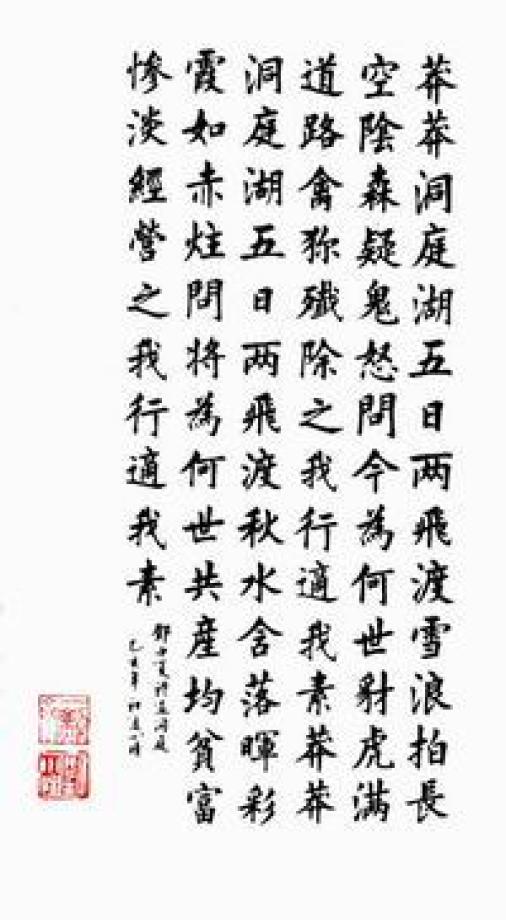 莽莽洞庭湖五日两飛渡雪浪拍長
空陰森疑鬼怒問今為何世豺虎滿
道路禽狝殲除之我行適我素莽莽
洞庭湖五日两飛渡秋水含落暉彩
霞如赤炷問將為何世共產均貧富
慘淡經營之我行適我素
鄧中夏詩過洞庭